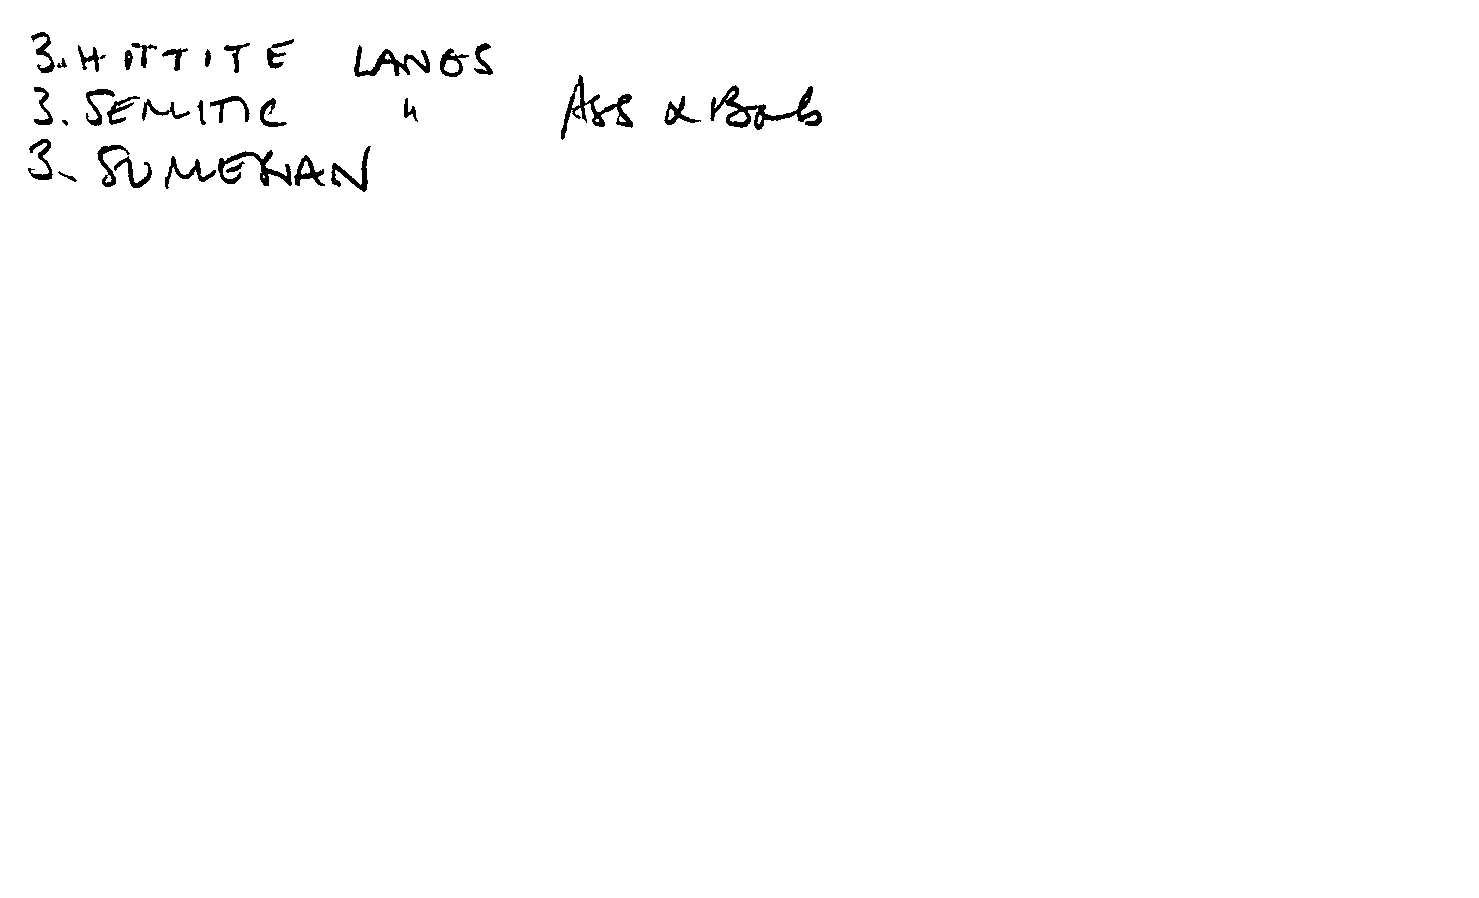 3. HITTITE LANGS
3. SEMITIC " Ass & Bab
3. SUMERIAN